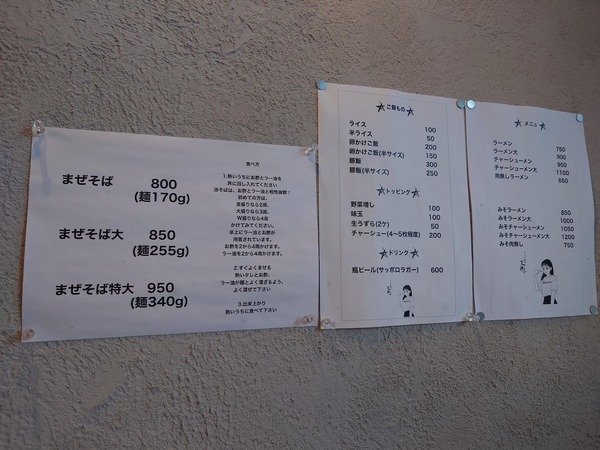 まぜそば 800
(麺170g)
まぜそば大 850
(麺255g)
まぜそば特大 950
(麺340g)
食べ方
1.熱いうちにお酢とラー油を
共に回し入れてください
油そばは、お酢とラー油と相性抜群!
初めての方は、
並盛りなら2周、
大盛りなら3周、
W盛りなら4周
かけてみてください。
卓上にラー油とお酢が
用意されています。
お酢を2から4周かけます。
ラー油を2から4周かけます。
2.すぐよくまぜる
熱いタレとお酢、
ラー油が麺とよく混ざるよう、
よく混ぜて下さい
3.出来上がり
熱いうちに食べて下さい
ご飯もの
ライス 100
半ライス 50
卵かけご飯 200
卵かけご飯(半サイズ) 150
豚飯 300
豚飯(半サイズ) 250
トッピング
野菜増し 100
味玉 100
生うずら(2ケ) 50
チャーシュー(4〜5枚程度) 200
ドリンク
瓶ビール(サッポロラガー) 600
メニュ
ラーメン 750
ラーメン大 900
チャーシューメン 950
チャーシューメン大 1100
肉無しラーメン 650
みそラーメン 850
みそラーメン大 1000
みそチャーシューメン 1050
みそチャーシューメン大 1200
みそ肉無し 750